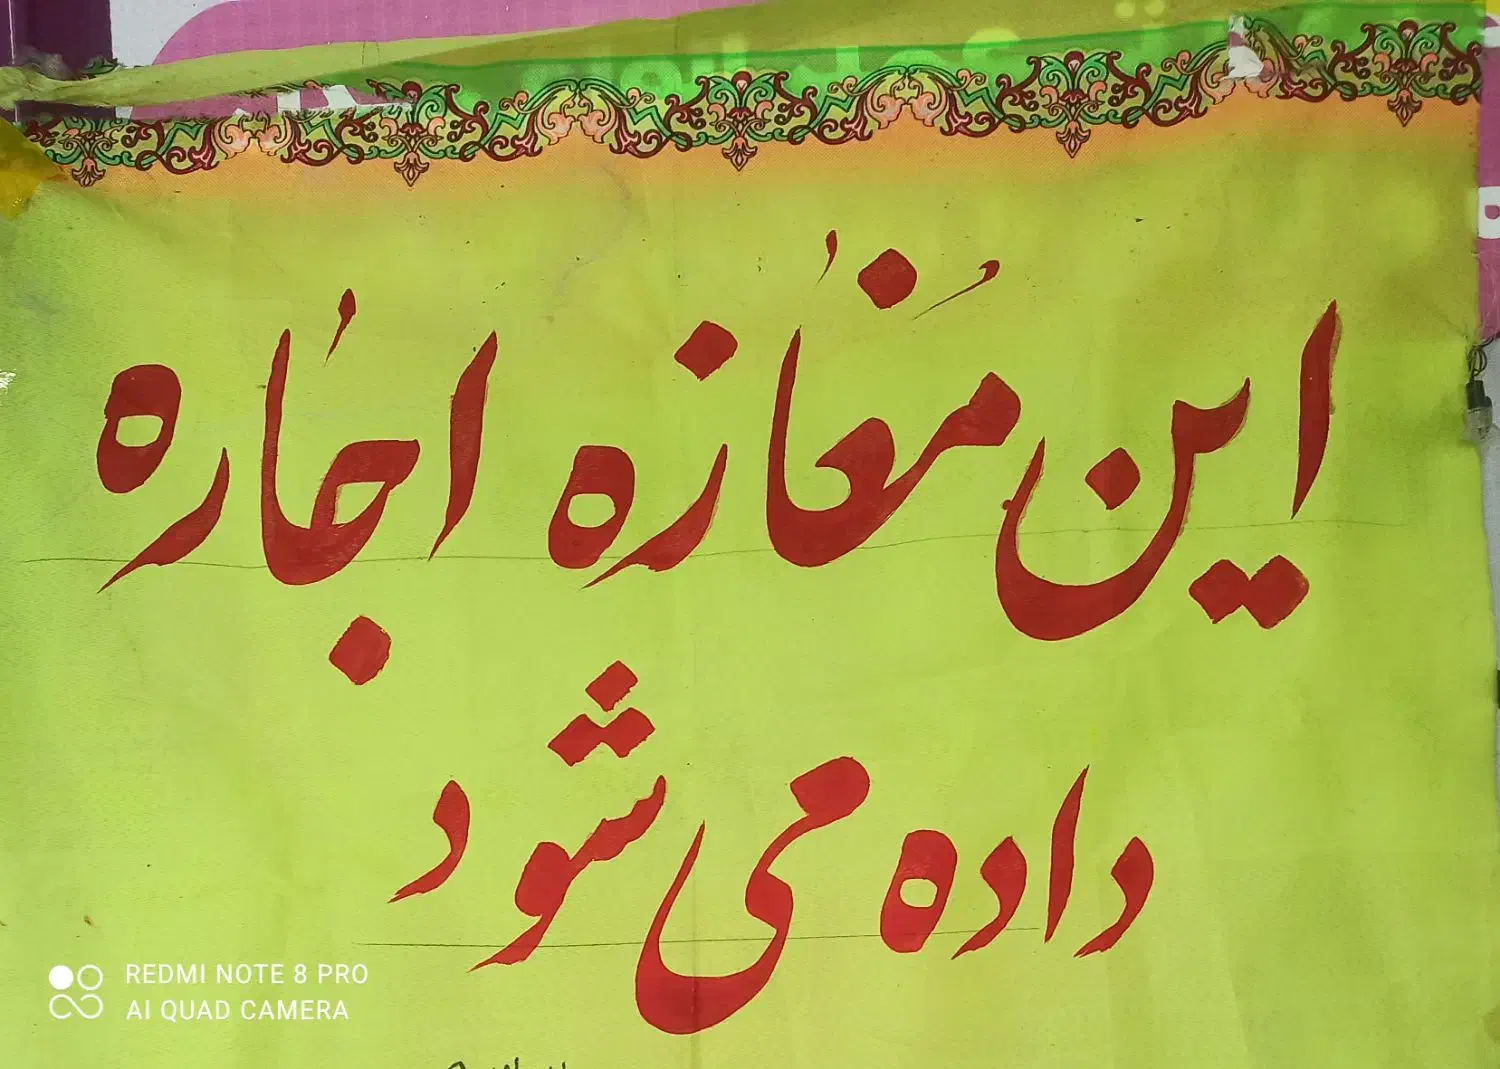 این مغازه اجاره
داده می شود
REDMI NOTE 8 PRO
AI QUAD CAMERA